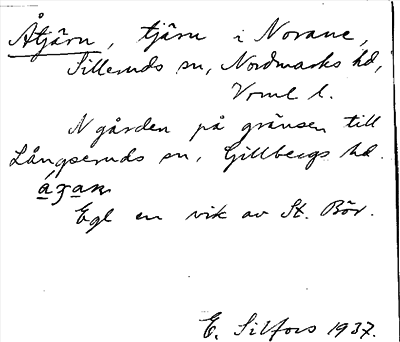 Åtjärn, tjärn i Norane,
Silleruds sn, Nordmarks hd,
Vrml l.
N gården på gränsen till
Långseruds sn, Gillbergs hd.
Egl en vik av St. Bör.
E. Silfors 1937.